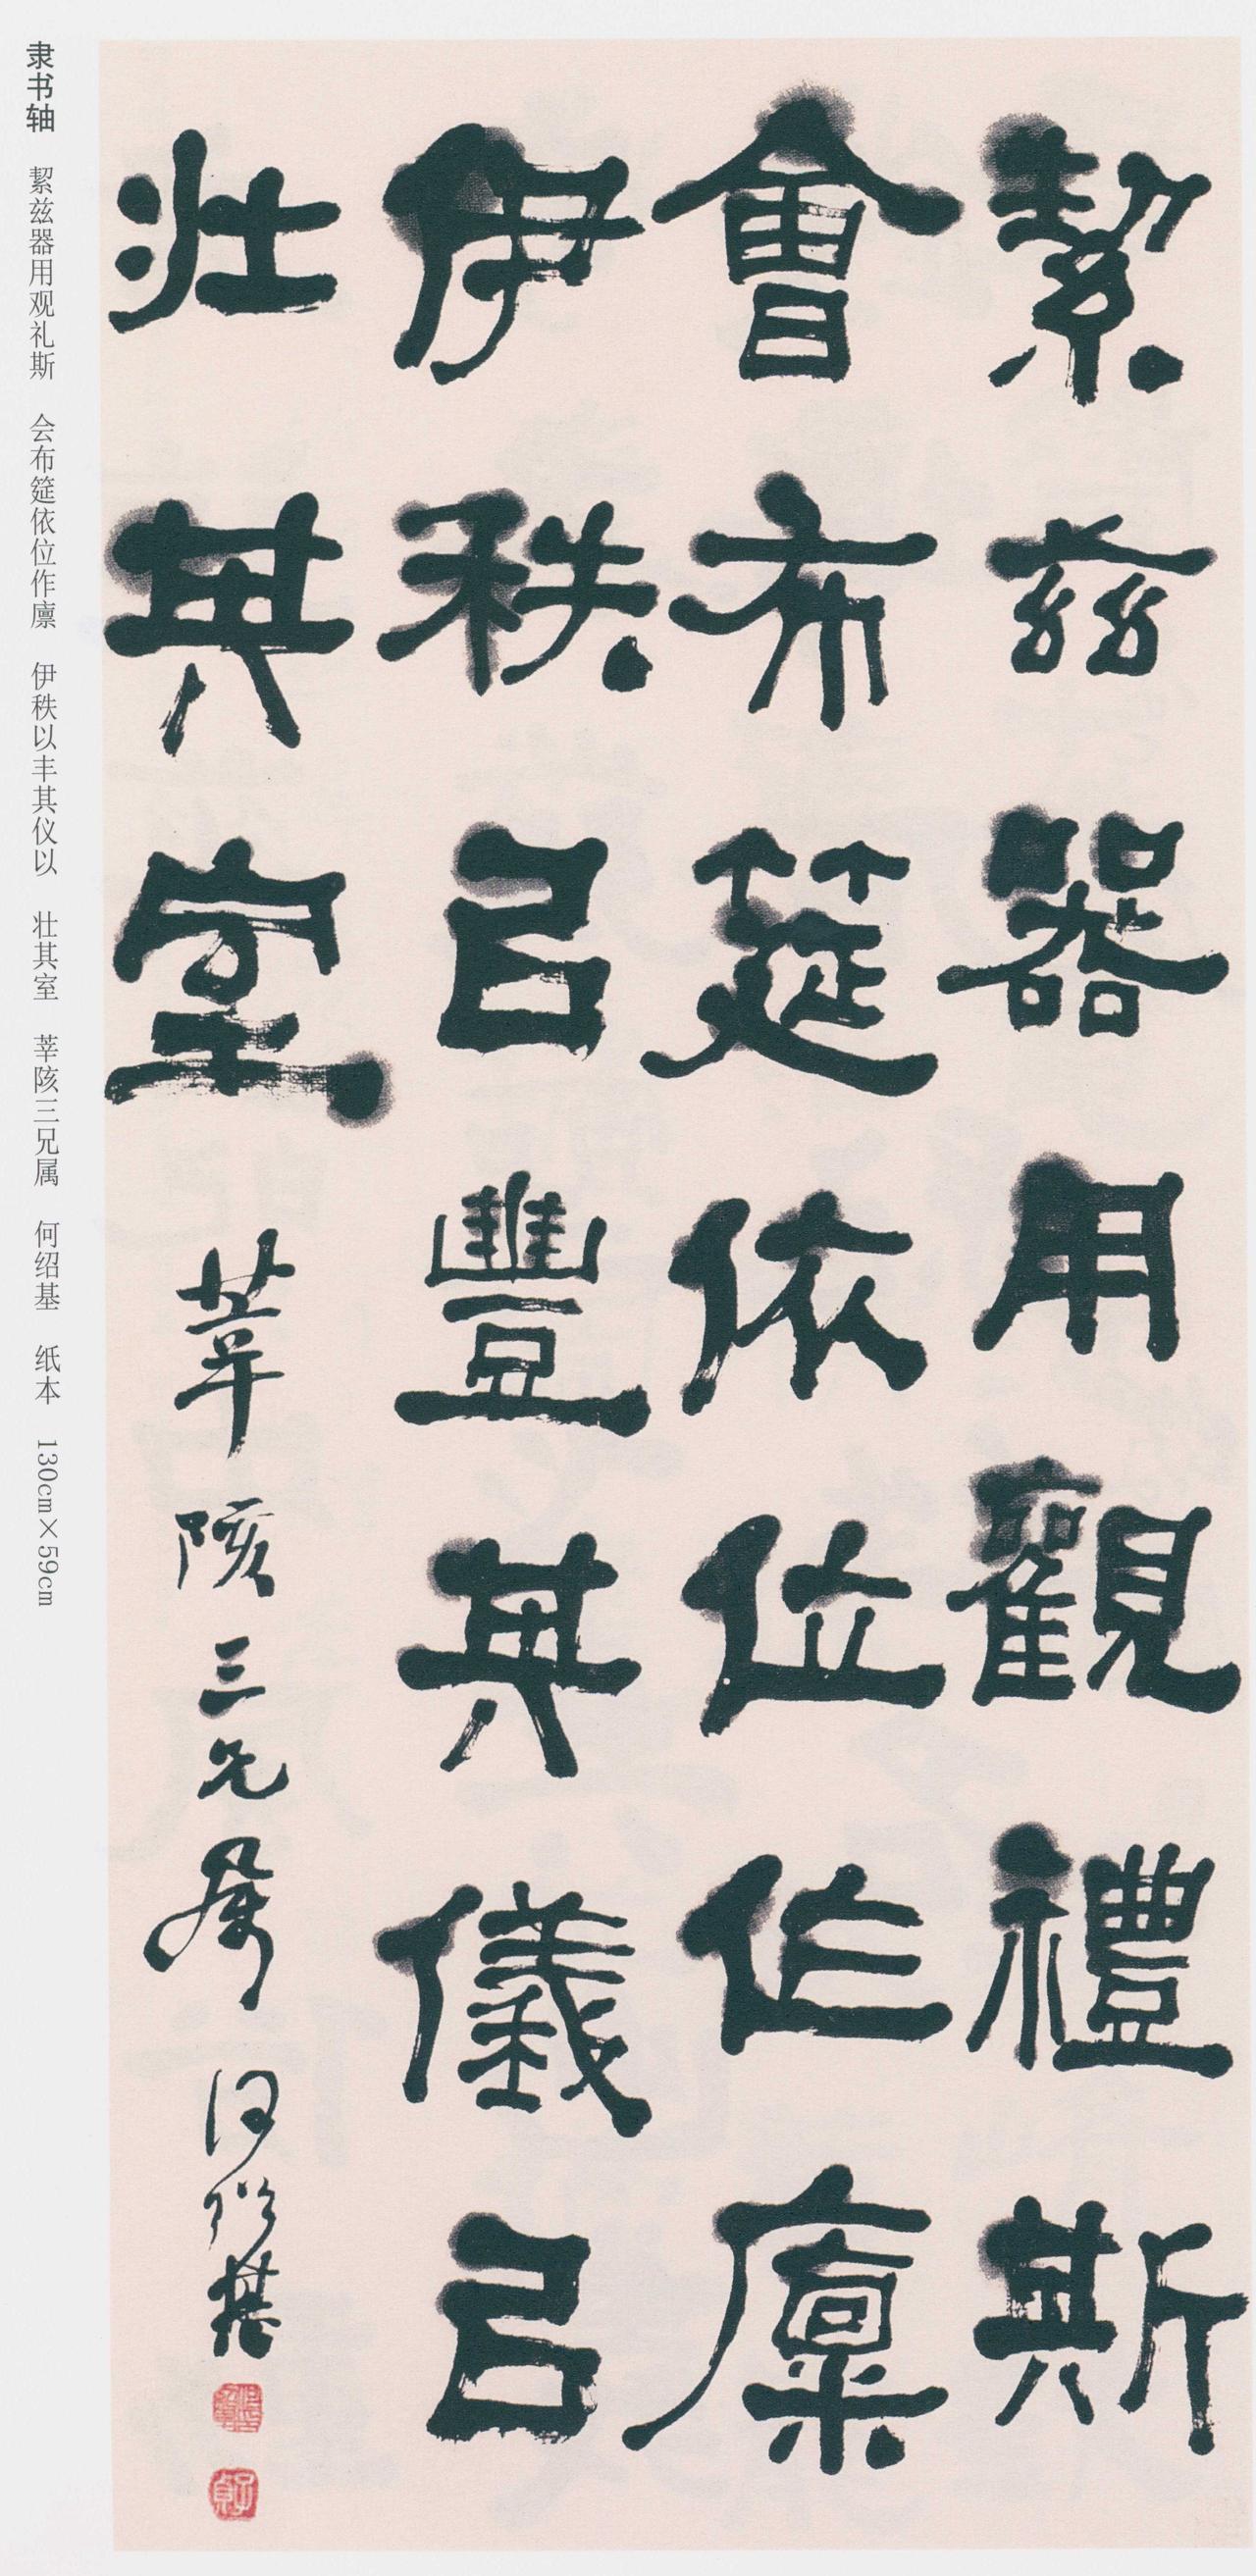 絜茲器用觀禮斯
會布筵依位作廪
伊秩㠯豐其儀㠯
壯其室
莘陔三兄屬 何紹基
子貞
隶书轴 絜兹器用观礼斯 会布筵依位作廪 伊秩以丰其仪以 壮其室 莘陔三兄属 何绍基 纸本 130cm×59cm